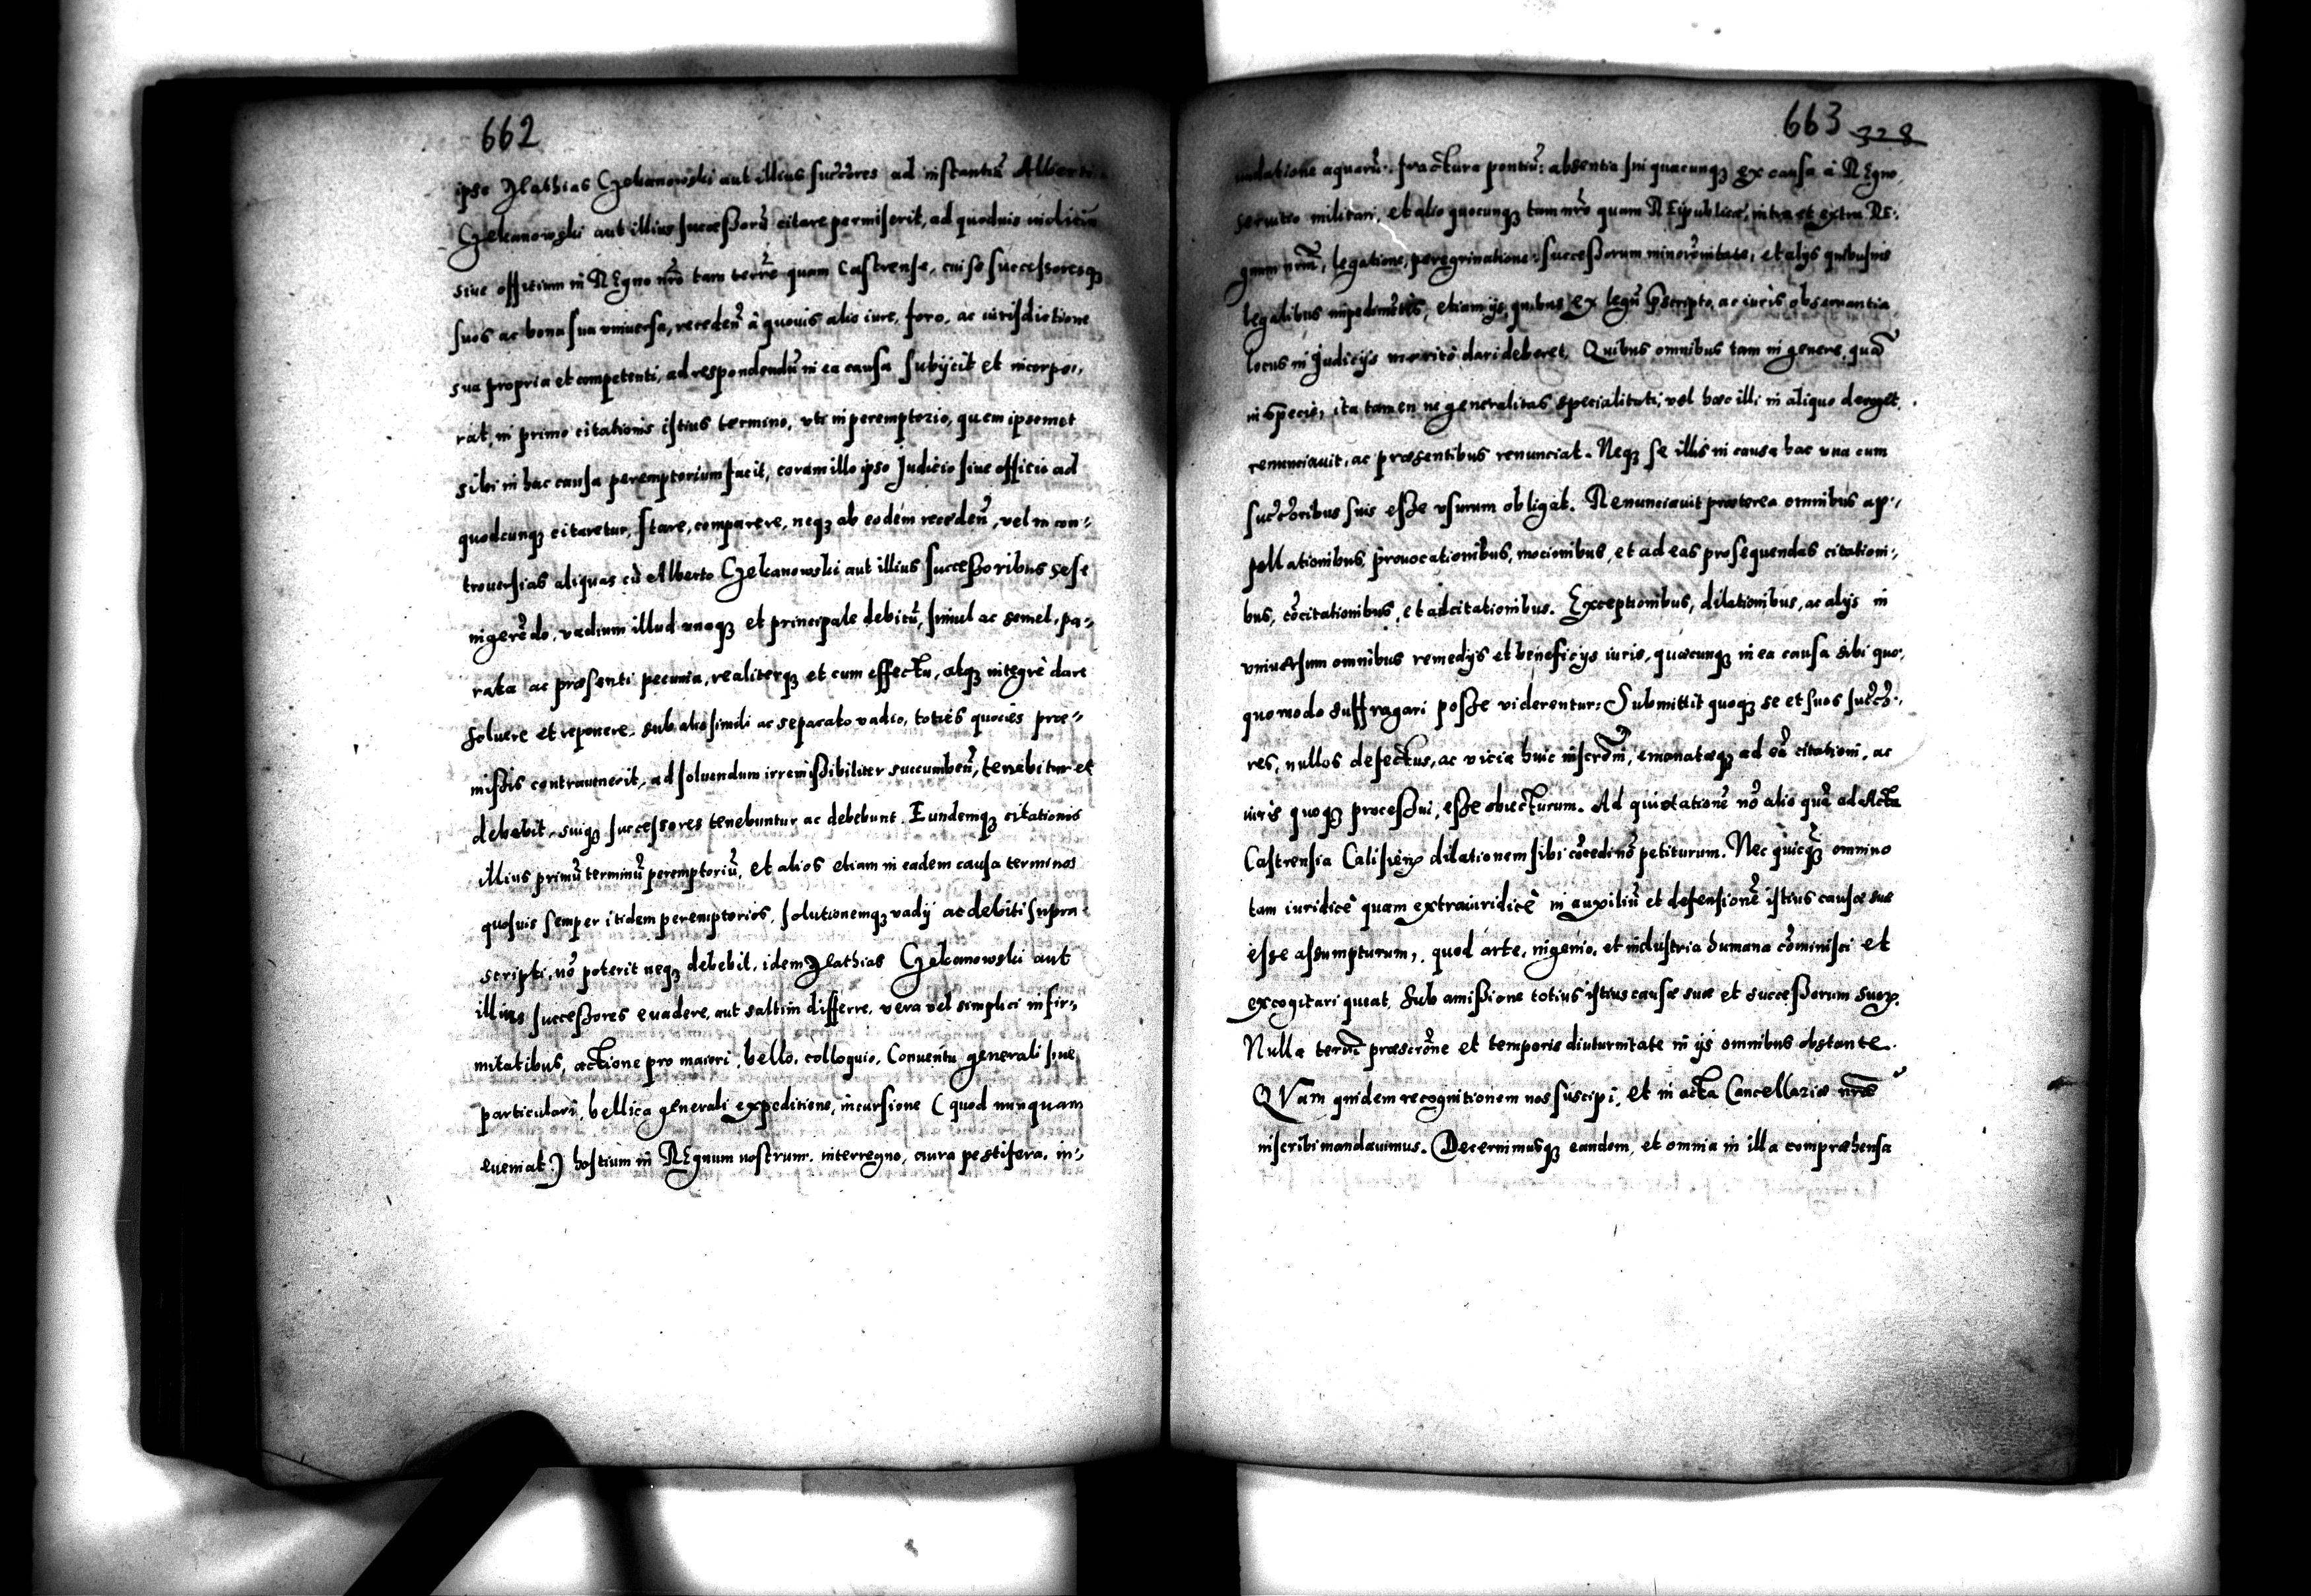 662
ipse Mathias Czekanowski aut illius succores ad instantiā Alberti
Czekanowski aut illius successorū citare permiserit, ad quoduis iudiciū
siue officium in REgno nrō tam terrre quam Castrense, cui se successoresq3
suos ac bona sua vniuersa, recedeñ à quouis alio iure, foro, ac iurisdictione
sua propria et competenti, ad respondendū in ea causa subijcit et incorpo,,
rat, in primo citationis istius termino, vti in peremptorio, quem ipsemet
sibi in hac causa peremptorium facit, coram illo ipso Judicio siue officio ad
quodcunq3 citaretur, stare, comparere, neq3 ab eodem recedeñ, vel in con,,
trouersias aliquas cū Alberto Czekanowski aut illius successoribus sese
ingerēdo, vadium illud unaq3 et principale debitū, simul ac semel, pa,,
rata ac præsenti pecunia, realiterq3 et cum effectu, atq3 integrè dare
soluere et reponere, sub alio simili ac separato vadio, toties quoties præ,,
missis contrauenerit, ad soluendum irremissibiliter succumbeñ, tenebitur et
debebit, suiq3 successores tenebuntur ac debebunt. Eundemq3 citationis
illius primū terminū peremptoriū, et alios etiam in eadem causa terminos
quosuis semper itidem peremptorios, solutionemq3 vadij ac debiti supra
scripti, nō poterit neq3 debebit, idem Mathias Czekanowski aut
illius successores euadere, aut saltim differre, vera vel simplici infir,,
mitatibus, actione pro maiori, bello, colloquio, Conuentu generali siue
particulari, bellica generali expeditione, incursione (quod nunquam
eueniat:) hostium in REgnum nostrum, interregno, aura pestifera, in,,
663 328
undatione aquarū, fractura pontiū: absentia sui quacunq3 ex causa à REgno,
seruitio militari, et alio quocunq3 tam nrō quam REipublicæ, intra et extra RE,,
gnum nrm̄, legatione, peregrinatione, successorum minorēnitate, et alijs quibusuis
legalibus impedimētis, etiam ijs, quibus ex legū præscripto, ac iuris obseruantia
locus in Judicijs meritò dari deberet, Quibus omnibus tam in genere, quā
in specie, ita tamen ne generalitas specialitati, vel hæc illi in aliquo deroget,
renunciauit, ac præsentibus renunciat. Neq3 se illis in causa hac una cum
succoribus suis esse vsurum obligat. Renunciauit præterea omnibus ap,,
pellationibus, prouocationibus, mocionibus, et ad eas prosequendas citationi,,
bus, cōcitationibus, et adcitationibus. Exceptionibus, dilationibus, ac alijs in
vniuersum omnibus remedijs et beneficijs iuris, quæcunq3 in ea causa sibi quo,,
quomodo suffragari posse viderentur: Submittit quoq3 se et suos succo,,
res, nullos defectus, ac vicia huic inscrōni, emanatæq3 ad eā citationi, ac
iuris quoq3 processui, esse obiecturum. Ad quietationē nō alio quā ad Acta
Castrensia Calisieñ dilationem sibi cōcedi nō petiturum. Nec quicq3 omnino
tam iuridicè quam extraiuridicè in auxiliū et defensionē istius causæ suæ
esse assumpturum, quod arte, ingenio, et industria humana cōminisci et
excogitari queat, sub amissione totius istius causæ suæ et successorum suor.
Nulla terrē præscrōne et temporis diuturnitate in ijs omnibus obstante.
QVam quidem recognitionem nos suscipi, et in acta Cancellariæ nræ
inscribi mandauimus. Decernimusq3 eandem, et omnia in illa comprehensa